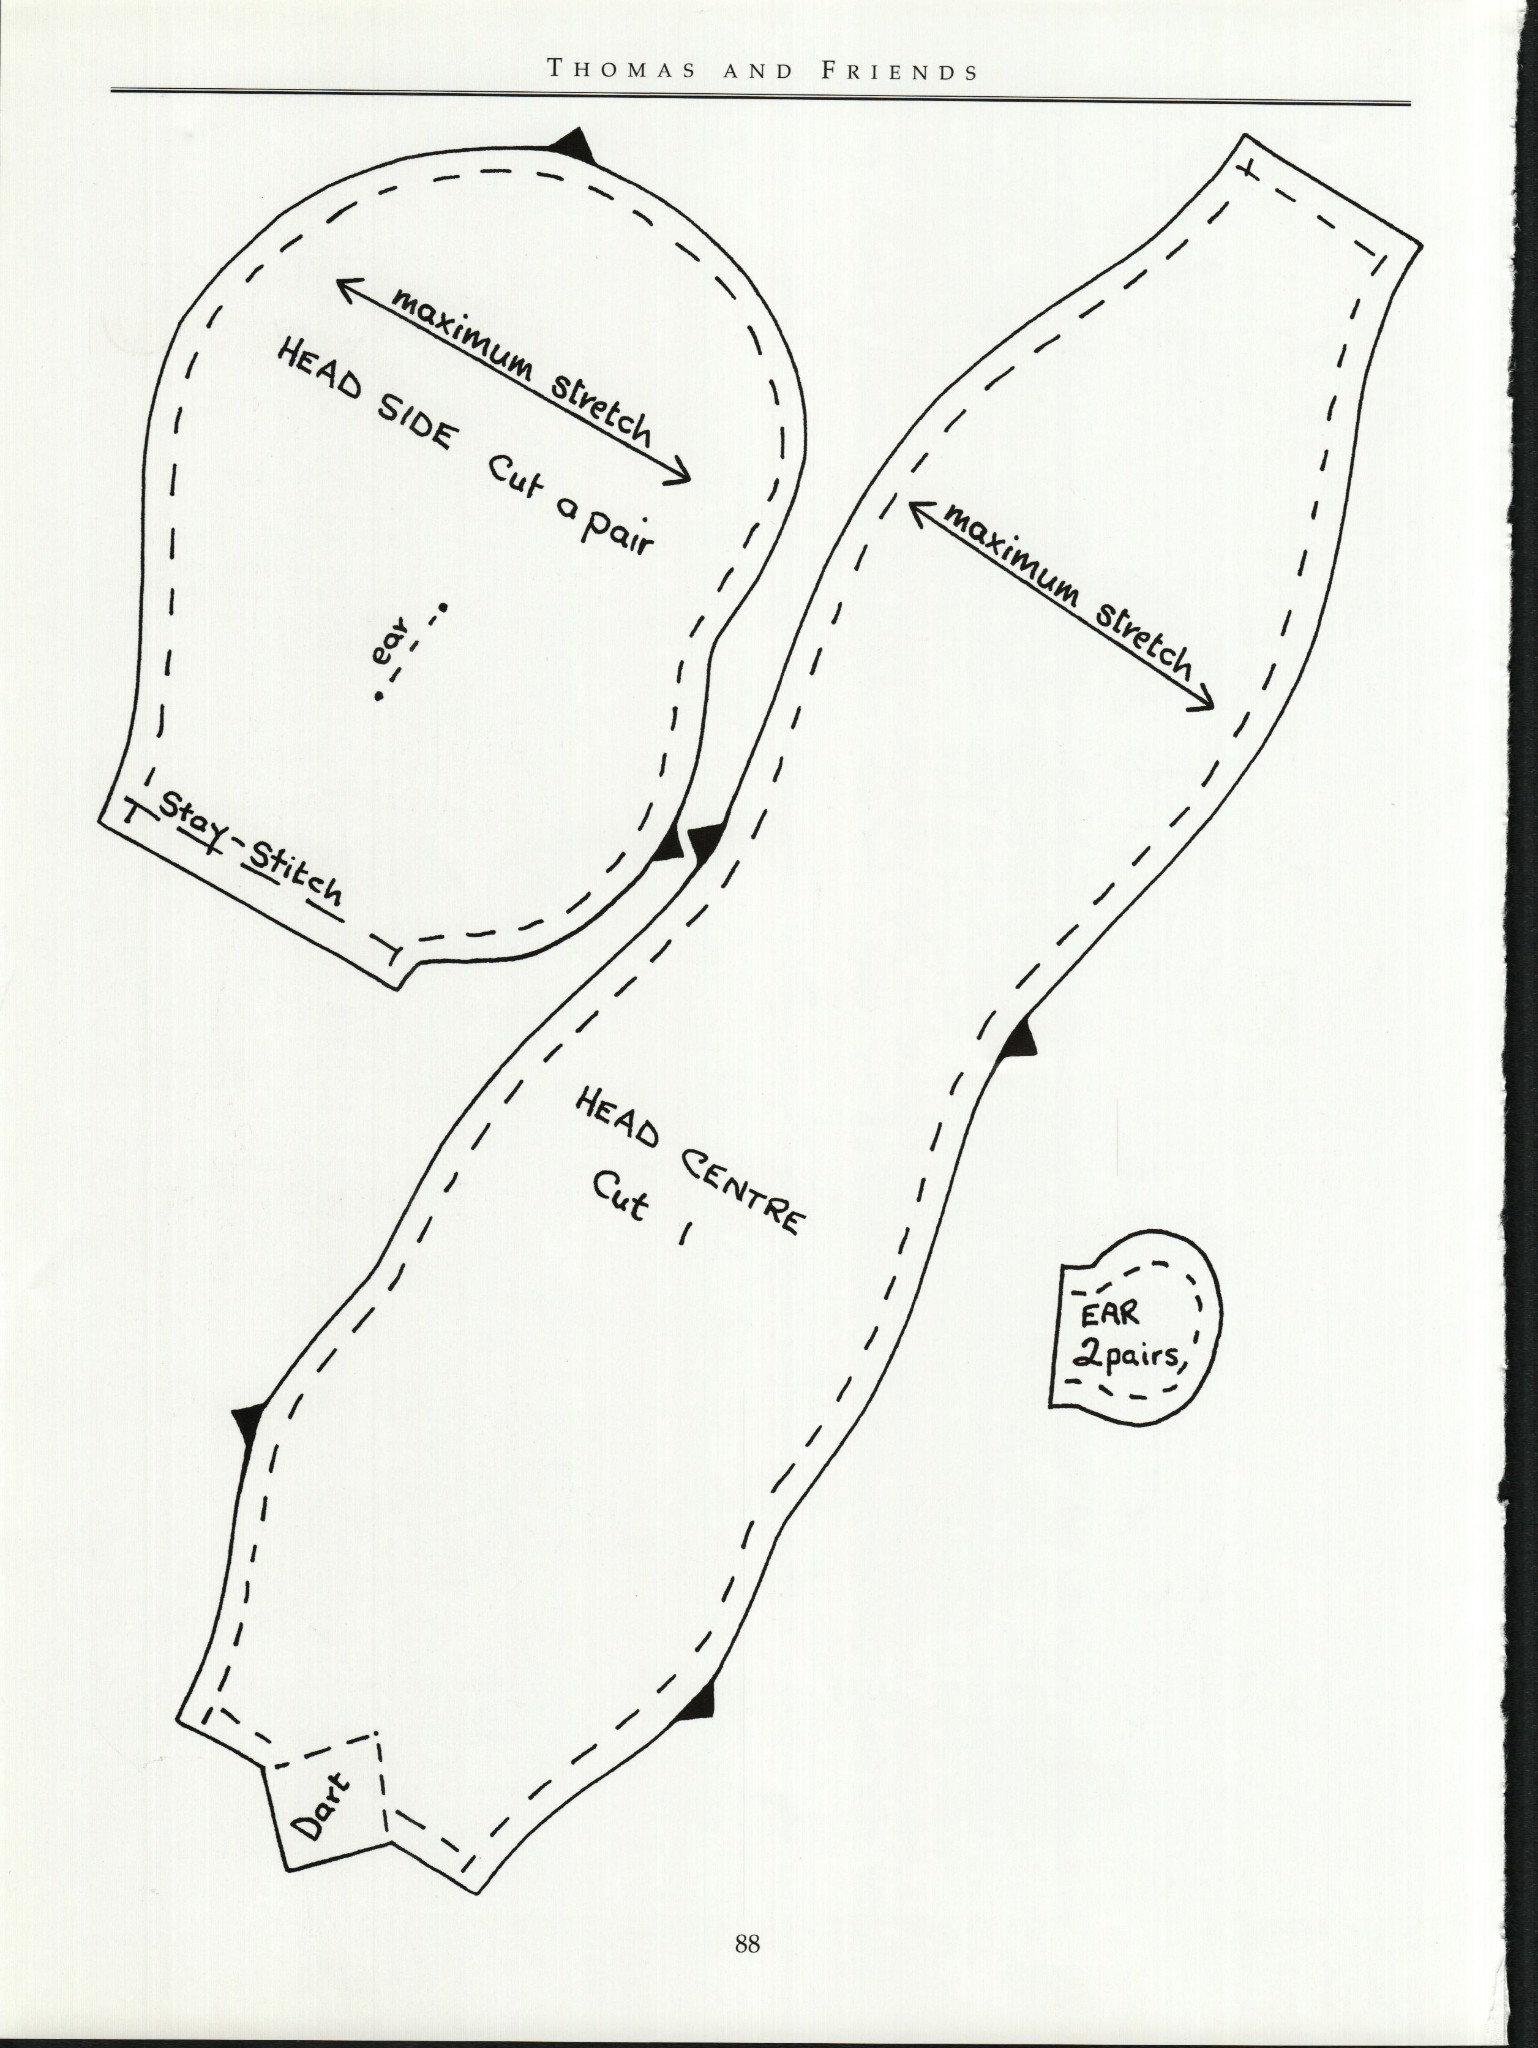 THOMAS AND FRIENDS
maximum stretch
HEAD SIDE Cut a pair
ear
Stay-Stitch
maximum stretch
HEAD CENTRE
Cut 1
EAR
2 pairs,
Dart
88